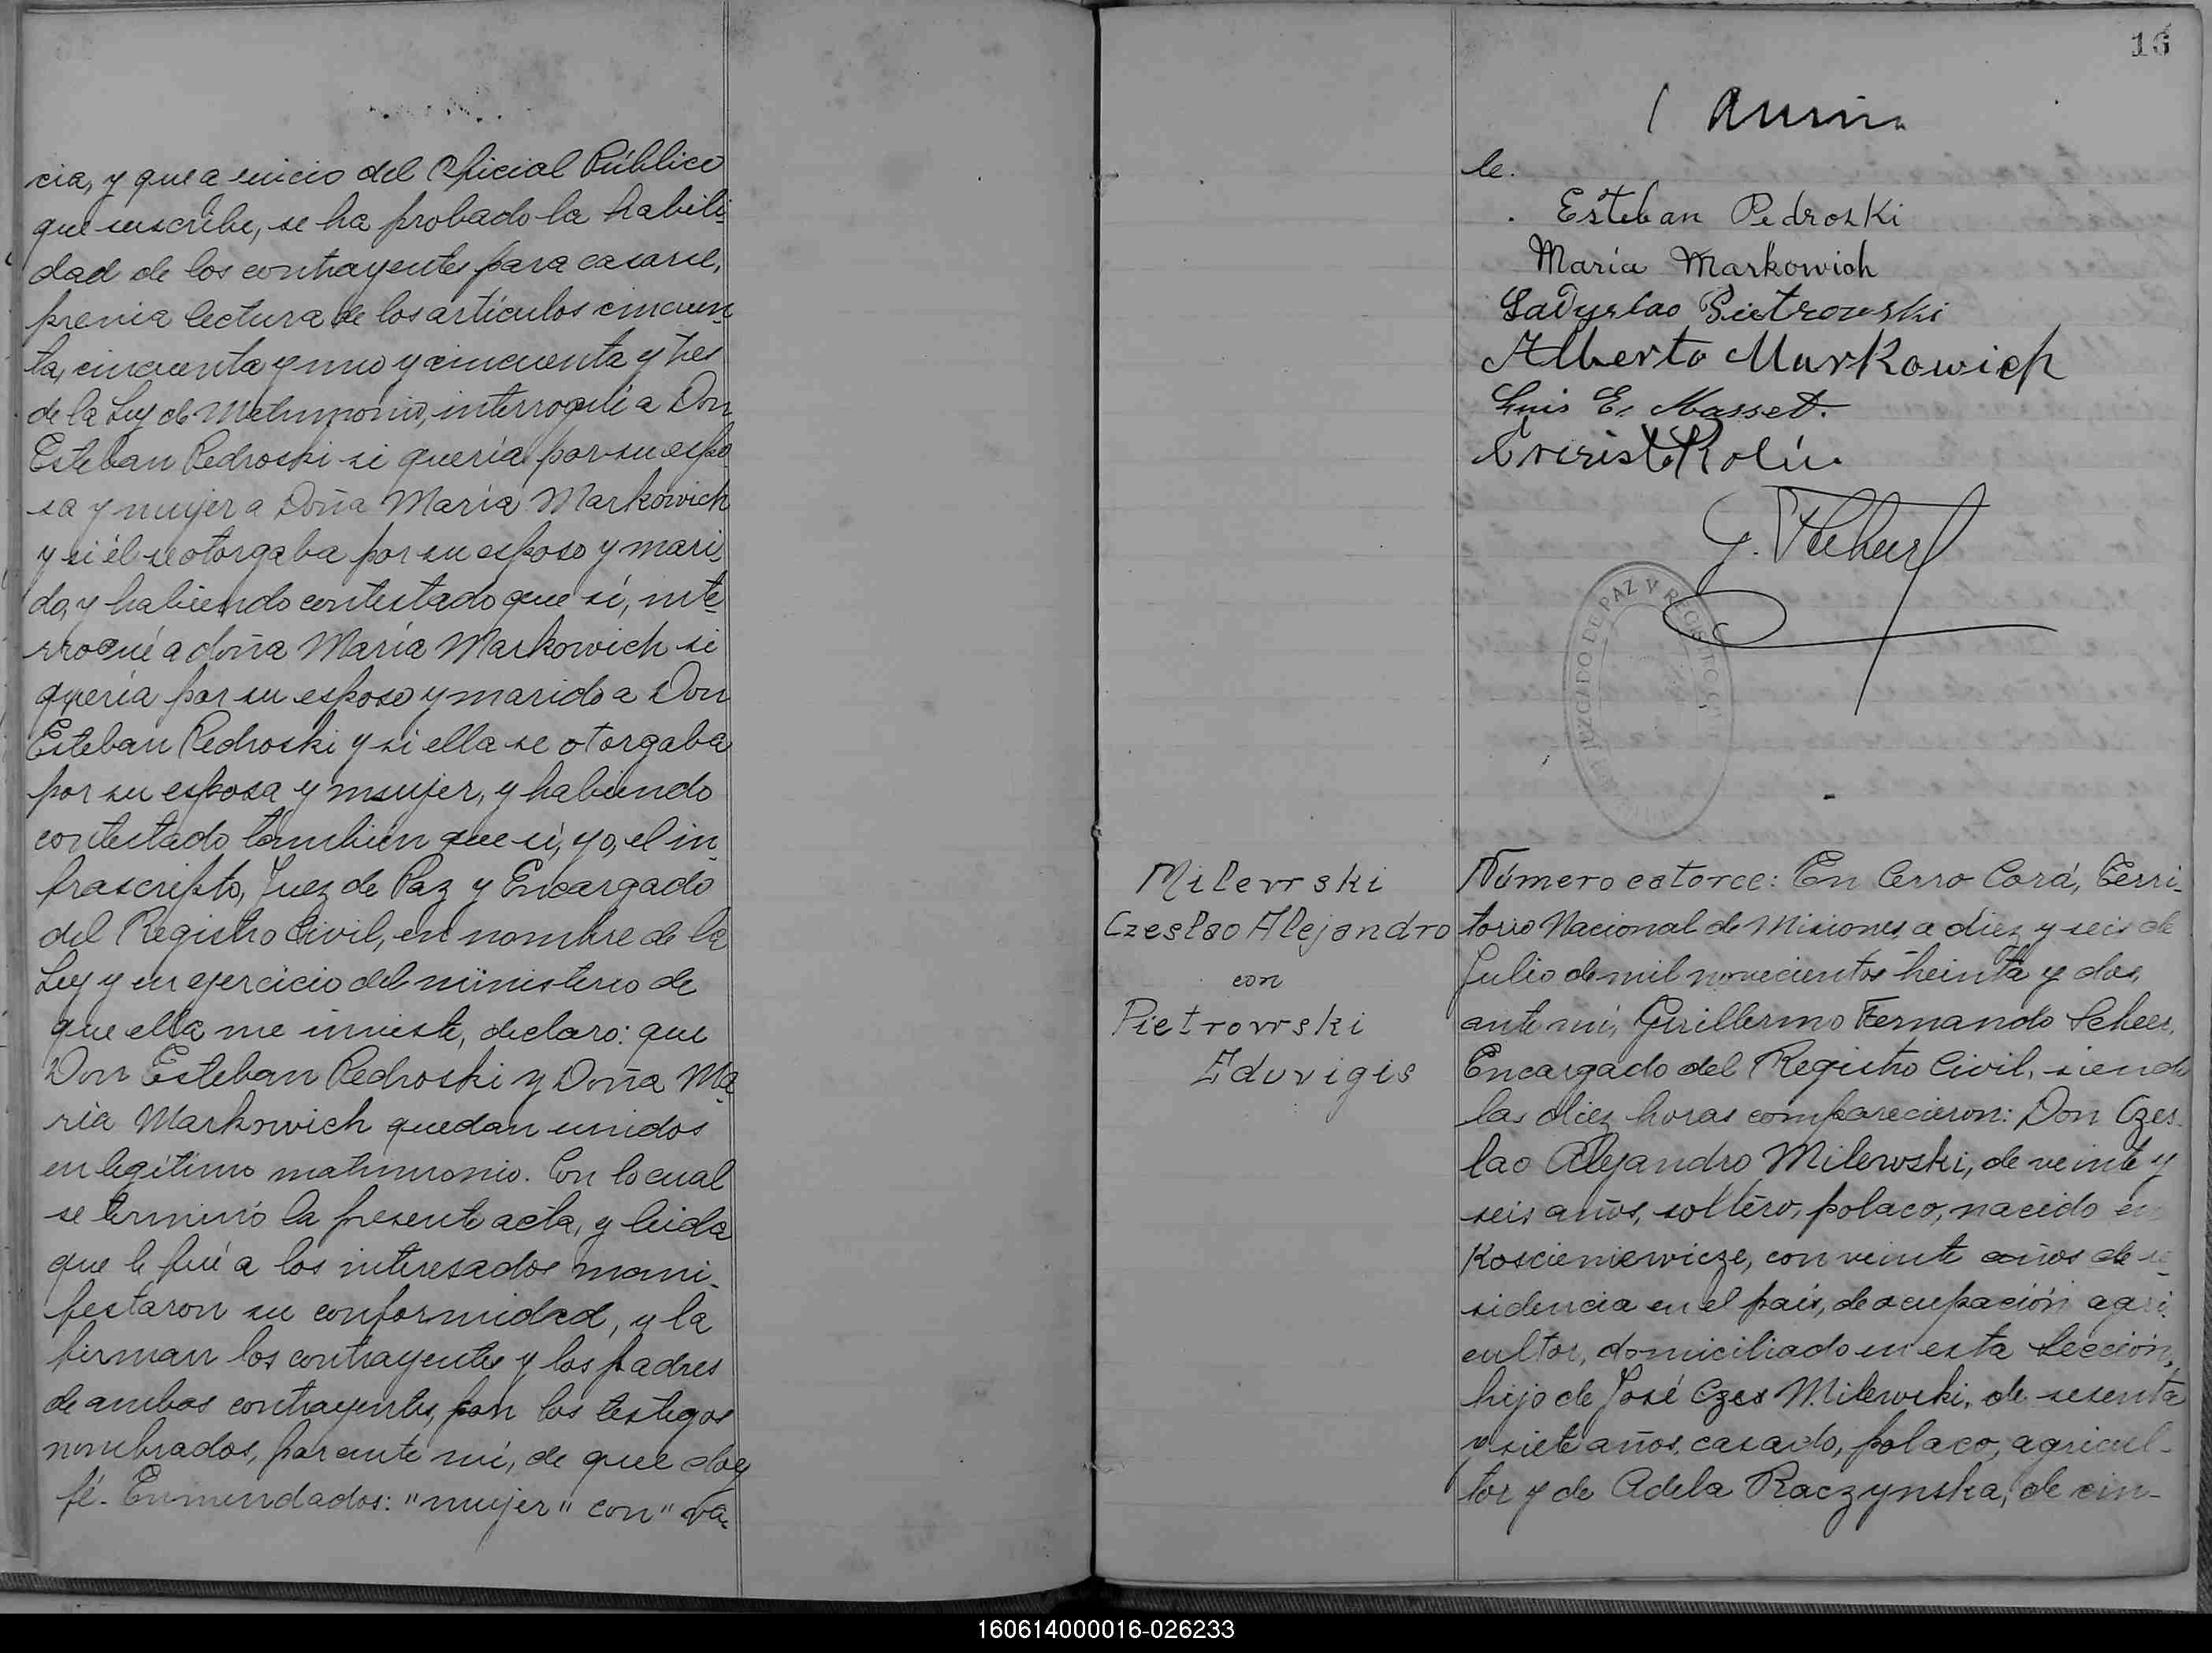 cia, y que a juicio del Oficial Público
que suscribe, se ha probado la habili-
dad de los contrayentes para casarse,
previa lectura de los artículos cincuen-
ta, cincuenta y uno y cincuenta y tres
de la Ley de Matrimonio, interrogué a Don
Esteban Pedroski si quería por su espo-
sa y mujer a Doña María Markowich
y si él se otorgaba por su esposo y mari-
do, y habiendo contestado que sí, inte-
rrogué a doña María Markowich si
quería por su esposo y marido a Don
Esteban Pedroski y si ella se otorgaba
por su esposa y mujer, y habiendo
contestado también que sí, yo, el in-
frascripto, Juez de Paz y Encargado
del Registro Civil, en nombre de la
Ley y en ejercicio del ministerio de
que ella me inviste, declaro: que
Don Esteban Pedroski y Doña Ma-
ría Markowich quedan unidos
en legítimo matrimonio. Con lo cual
se terminó la presente acta, y leida
que le fué a los interesados mani-
festaron su conformidad, y la
firman los contrayentes y los padres
de ambos contrayentes, con los testigos
nombrados, por ante mí, de que doy
fé. Enmendados: "mujer" con "va-
16
le.
Esteban Pedroski
María Markowich
Ladyslao Pietrowski
Alberto Markowich
Luis E. Masset.
Evaristo Rolín
JUZGADO DE PAZ Y REGISTRO CIVIL
Milewski
Czeslao Alejandro
con
Pietrowski
Eduvigis
Número catorce: En Cerro Corá, Terri-
torio Nacional de Misiones, a diez y seis de
Julio de mil novecientos treinta y dos,
ante mí, Guillermo Fernando
Encargado del Registro Civil, siendo
las diez horas comparecieron: Don Czes-
lao Alejandro Milewski, de veinte y
seis años, soltero, polaco, nacido en
Koscieniewicze, con veinte años de re-
sidencia en el país, de ocupación agri-
cultor, domiciliado en esta Sección,
hijo de José Czes Milewski, de sesenta
y siete años, casado, polaco, agricul-
tor y de Adela Raczynska, de cin-
160614000016-026233